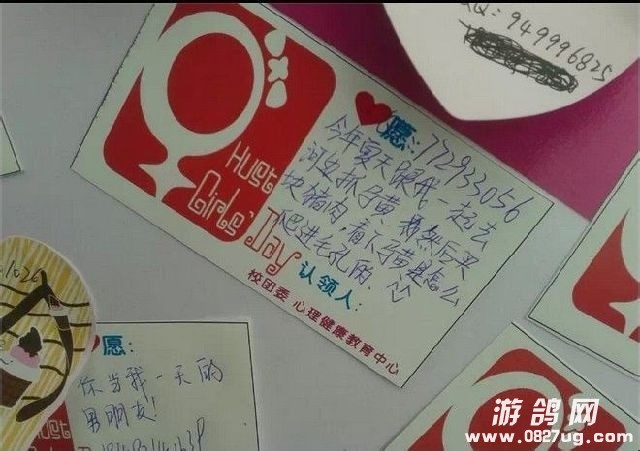 QQ: 949996825
愿: 772933056
今年夏天跟我一起去
河边抓蚂蟥,然后买
块猪肉,看下蚂蟥是怎么
巴进毛孔的.
Hust
Girls' Day
认领人:
校团委 心理健康教育中心
愿:
你当我一天的
男朋友!
Hust
游鸽网
www.0827ug.com